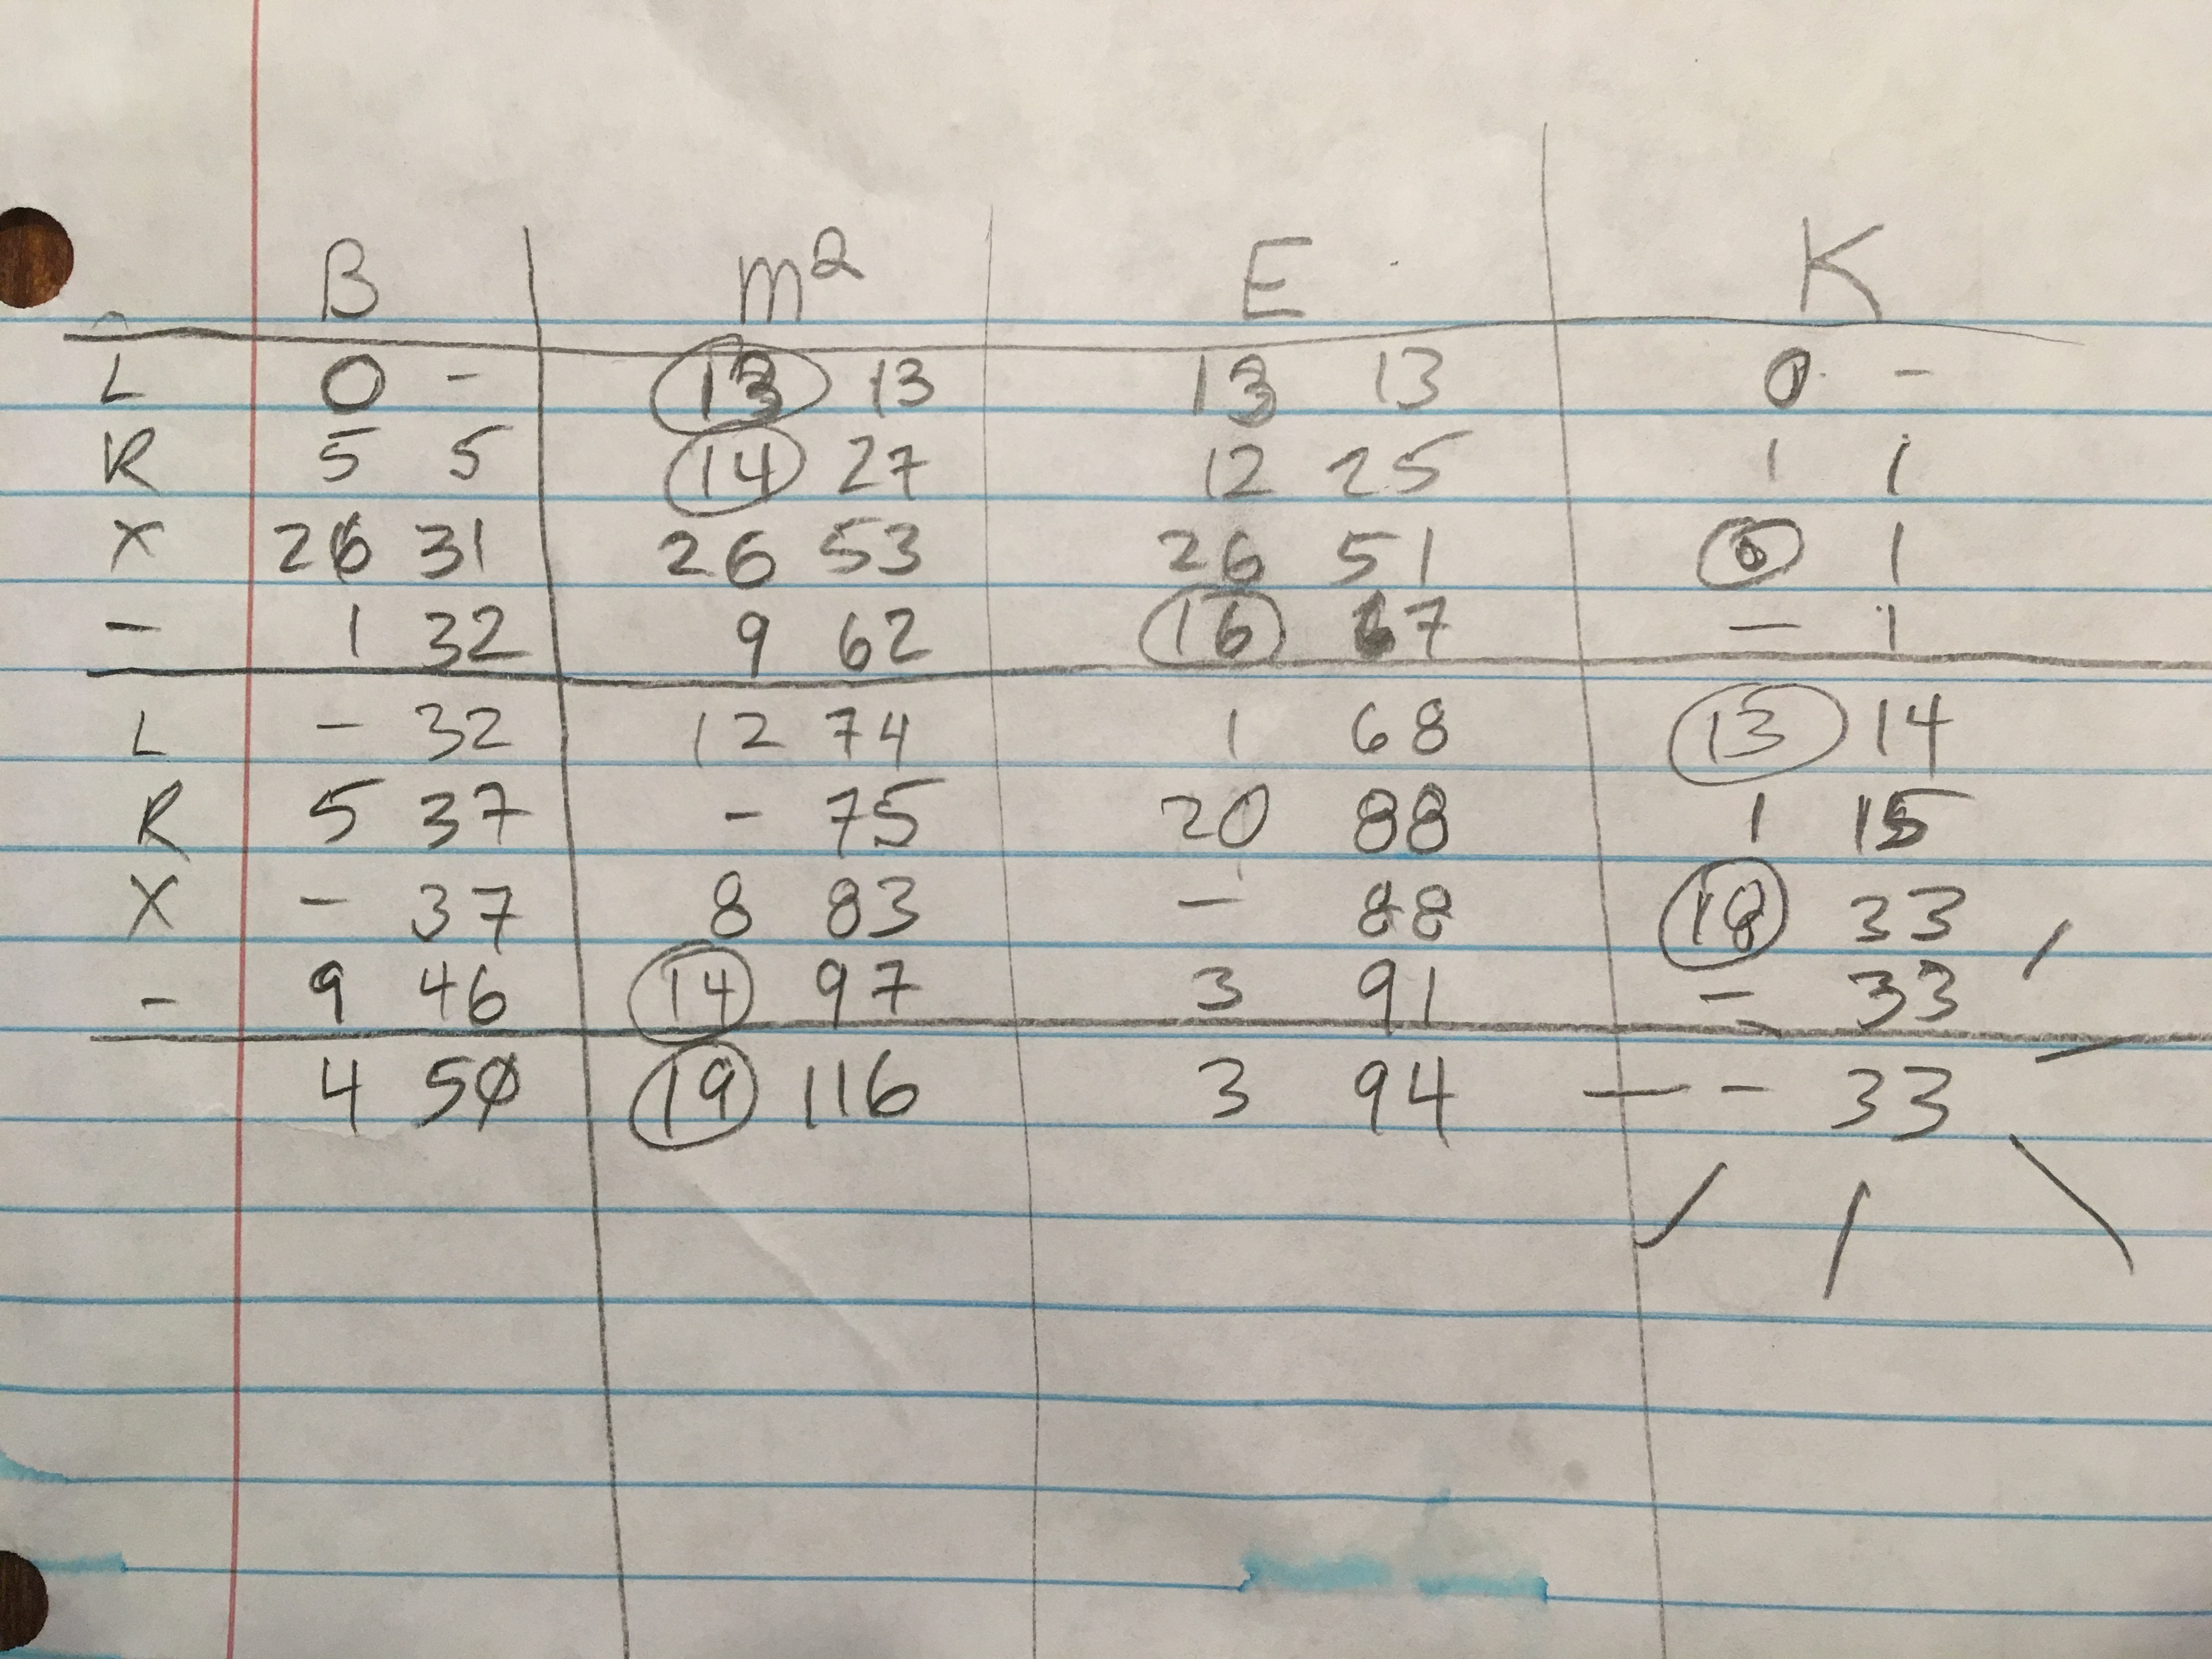 B m² E K
L 0 - 13 13 13 13 0 -
R 5 5 14 27 12 25 1 1
X 26 31 26 53 26 51 0 1
- 1 32 9 62 16 67 - 1
L - 32 12 74 1 68 13 14
R 5 37 - 75 20 88 1 15
X - 37 8 83 - 88 18 33
- 9 46 14 97 3 91 - 33
4 50 19 116 3 94 - - 33